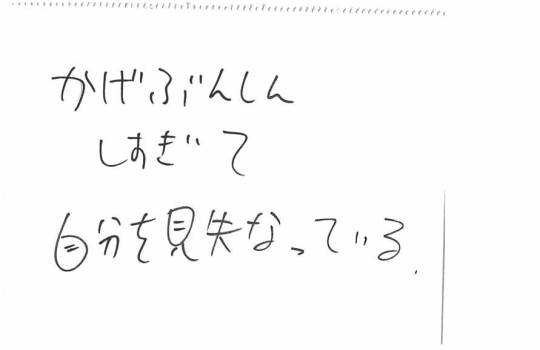 かげぶんしん
しすぎて
自分を見失なっている.